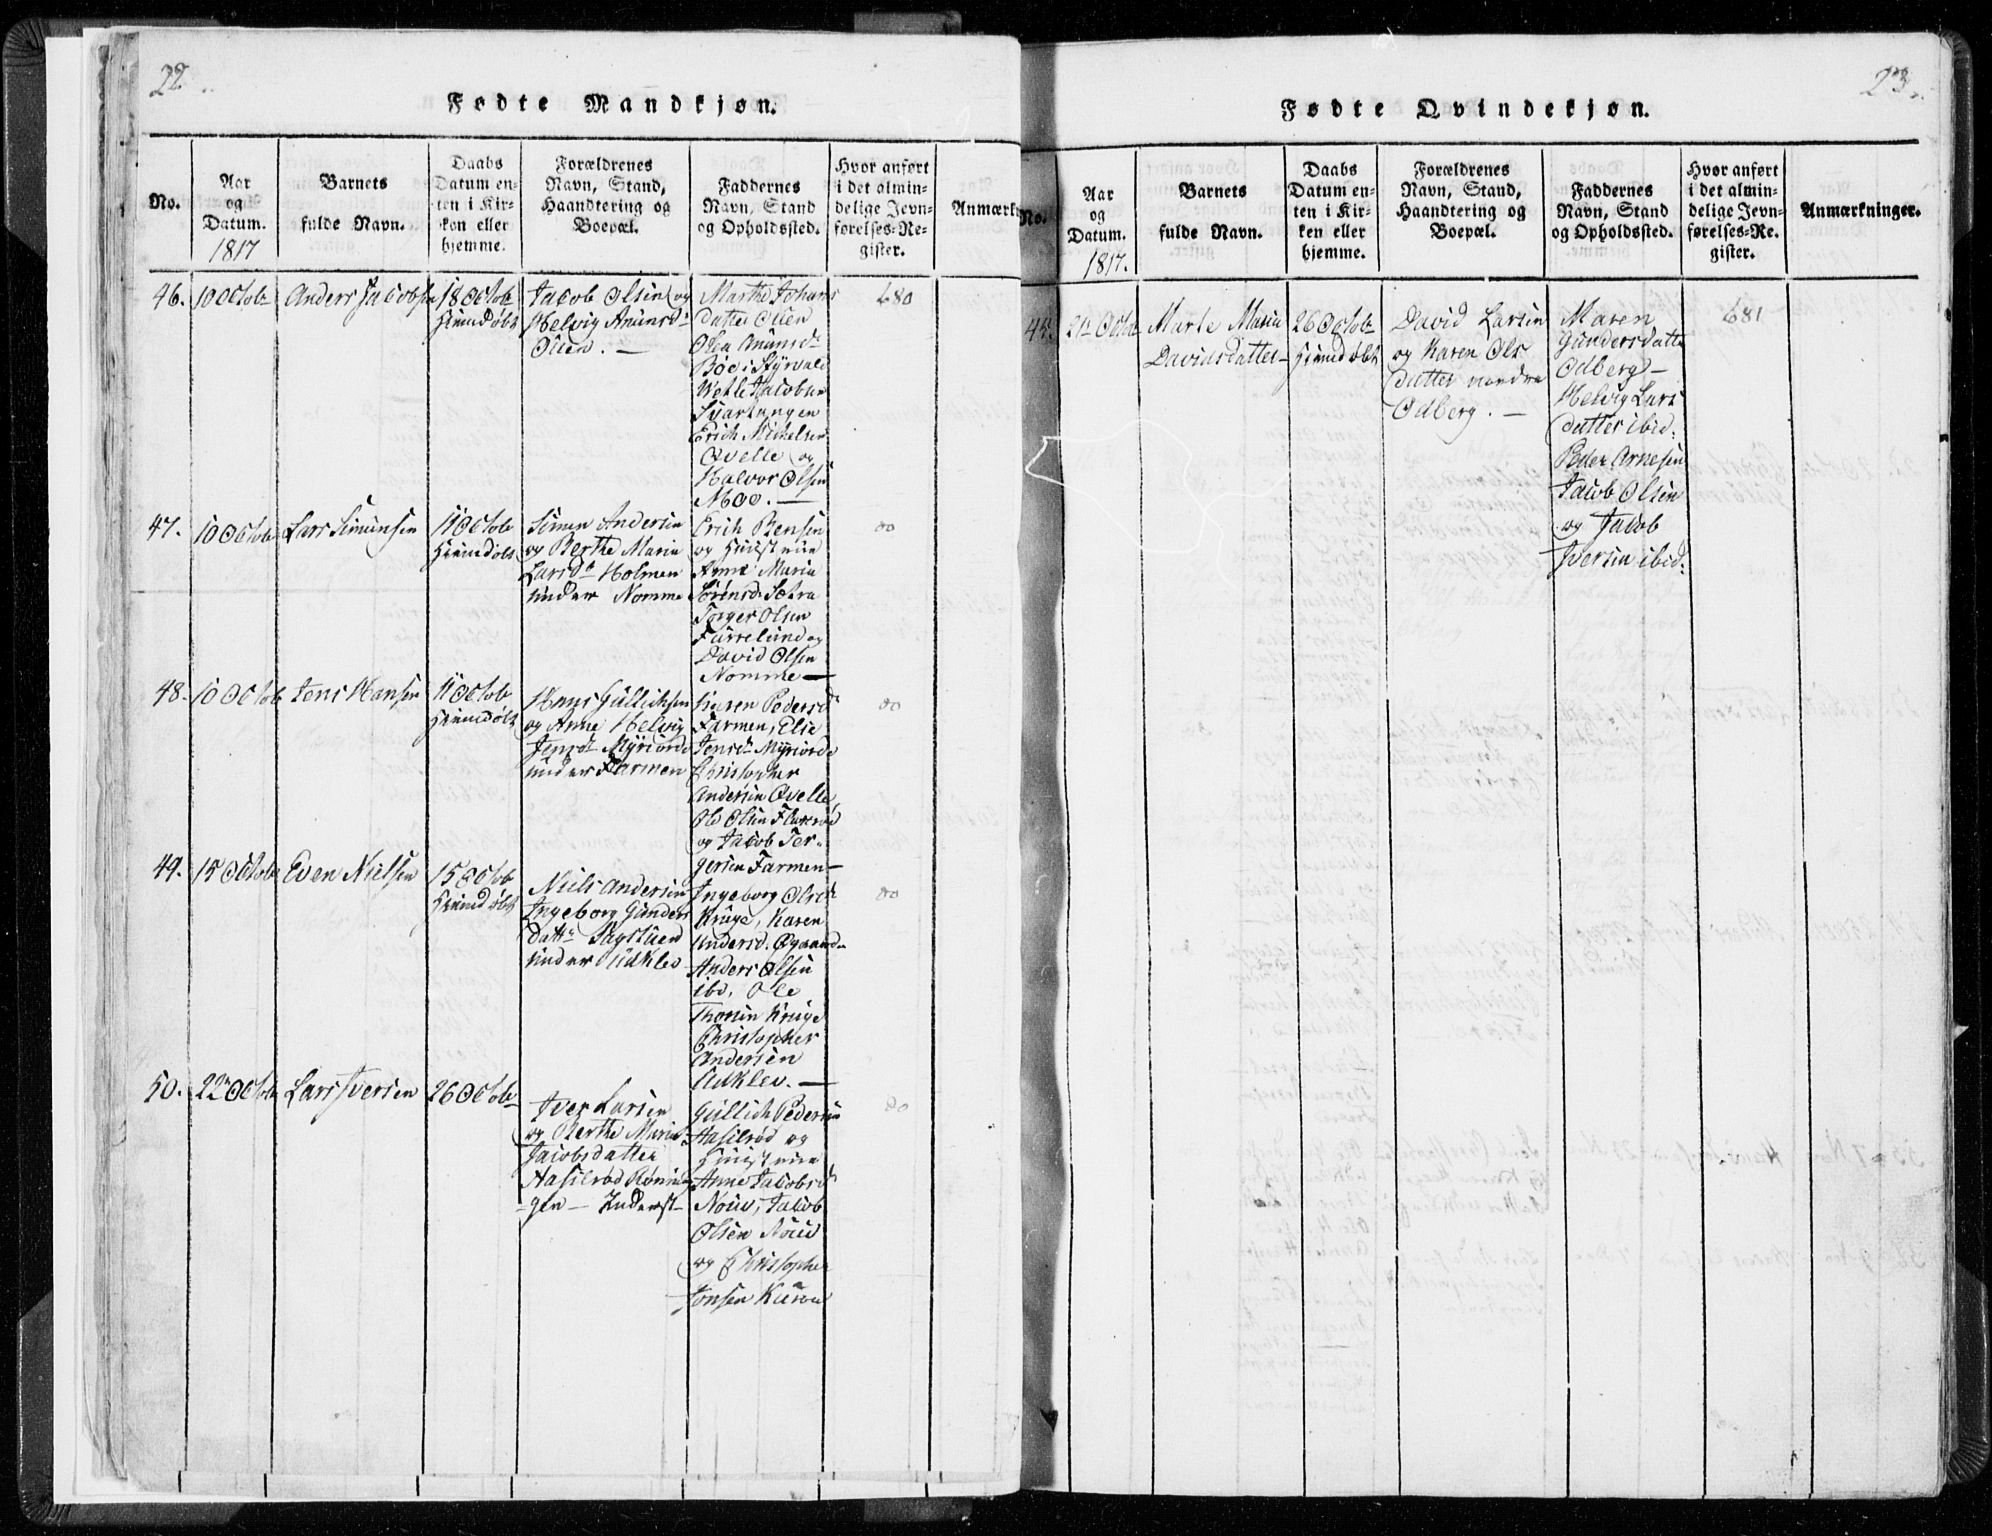 22
Fødte Mandkjøn.
No.
Aar
og
Datum.
1817
Barnets
fulde Navn.
Daabs
Datum en-
ten i Kir-
ken eller
hjemme.
Forældrenes
Navn, Stand,
Haandtering og
Boepæl.
Faddernes
Navn, Stand
og Opholdssted.
Hvor anført
i det almin-
delige Jevn-
førelses-Re-
gister.
Anmærk
46.
10 Octobr
Anders Jacobsen
18 Octobr
hiemdøbt
Jacob Olsen og
Helvig Anunsdr
Ouen. —
Marthe Johans
datter Ouen
Olea Anunsdr
Bøe i Styrvold
Wetle Jacobsen
Svartangen
Erich Michelsen
Qvelle og
Halvor Olsen
Moe. —
680
47.
10 Octobr
Lars Simensen
11 Octobr
hiemdøbt
Simen Andersen
og Berthe Maria
Larsdr Holmen
under Nomme
Erich Bensen
og Hustrue
Anne Maria
Sørensd. Sætra
Torger Olsen
Furrelund og
David Olsen
Nomme —
do
48.
10 Octobr
Jens Hansen
11 Octobr
hiemdøbt
Hans Gullichsen
og Anne Helvig
Jensdr
under Farmen
Karen Pedersdr
Farmen, Elie
Jensdr
Christopher
Andersen Qvelle
Ole Olsen
og Jacob Tor-
gersen Farmen —
do
49.
15 Octobr
Even Nielsen
15 Octobr
hiemdøbt
Niels Andersen
Ingeborg Gunders
dattr Sagstuen
under Udklev
Ingeborg Olsdr
Kruge, Karen
Andersd.
Anders Olsen
ibd. Ole
Kruge
Christopher
Andersen
Udklev. —
do
50.
22 Octobr
Lars Iversen
26 Octobr
Iver Larsen
og Berthe Maria
Jacobsdatter
Hasilrød Rønnin
-gen — Inderst
Gullich Pedersen
Hasilrød og
Hustrue
Anne Jacobsdr
Jacob
Olsen
og Christopher
Jonsen
do
23.
Fødte Qvindekjøn.
No.
Aar
og
Datum.
1817.
Barnets
fulde Navn.
Daabs
Datum en-
ten i Kir-
ken eller
hjemme.
Forældrenes
Navn, Stand,
Haandtering og
Boepæl.
Faddernes
Navn, Stand
og Opholdssted.
Hvor anført
i det almin-
delige Jevn-
førelses-Re.
gister.
Anmærkninger.
44.
21 Octobr
Marte Maria
Davidsdatter
26 Octobr
hiemdøbt
David Larsen
og Karen Ols
datter nordre
Odberg. —
Maren
Gundersdatter
Odberg —
Helvig Lars
datter ibid.
Peder Arnesen
Jacob Olsen
og Jacob
Iversen ibid.
681